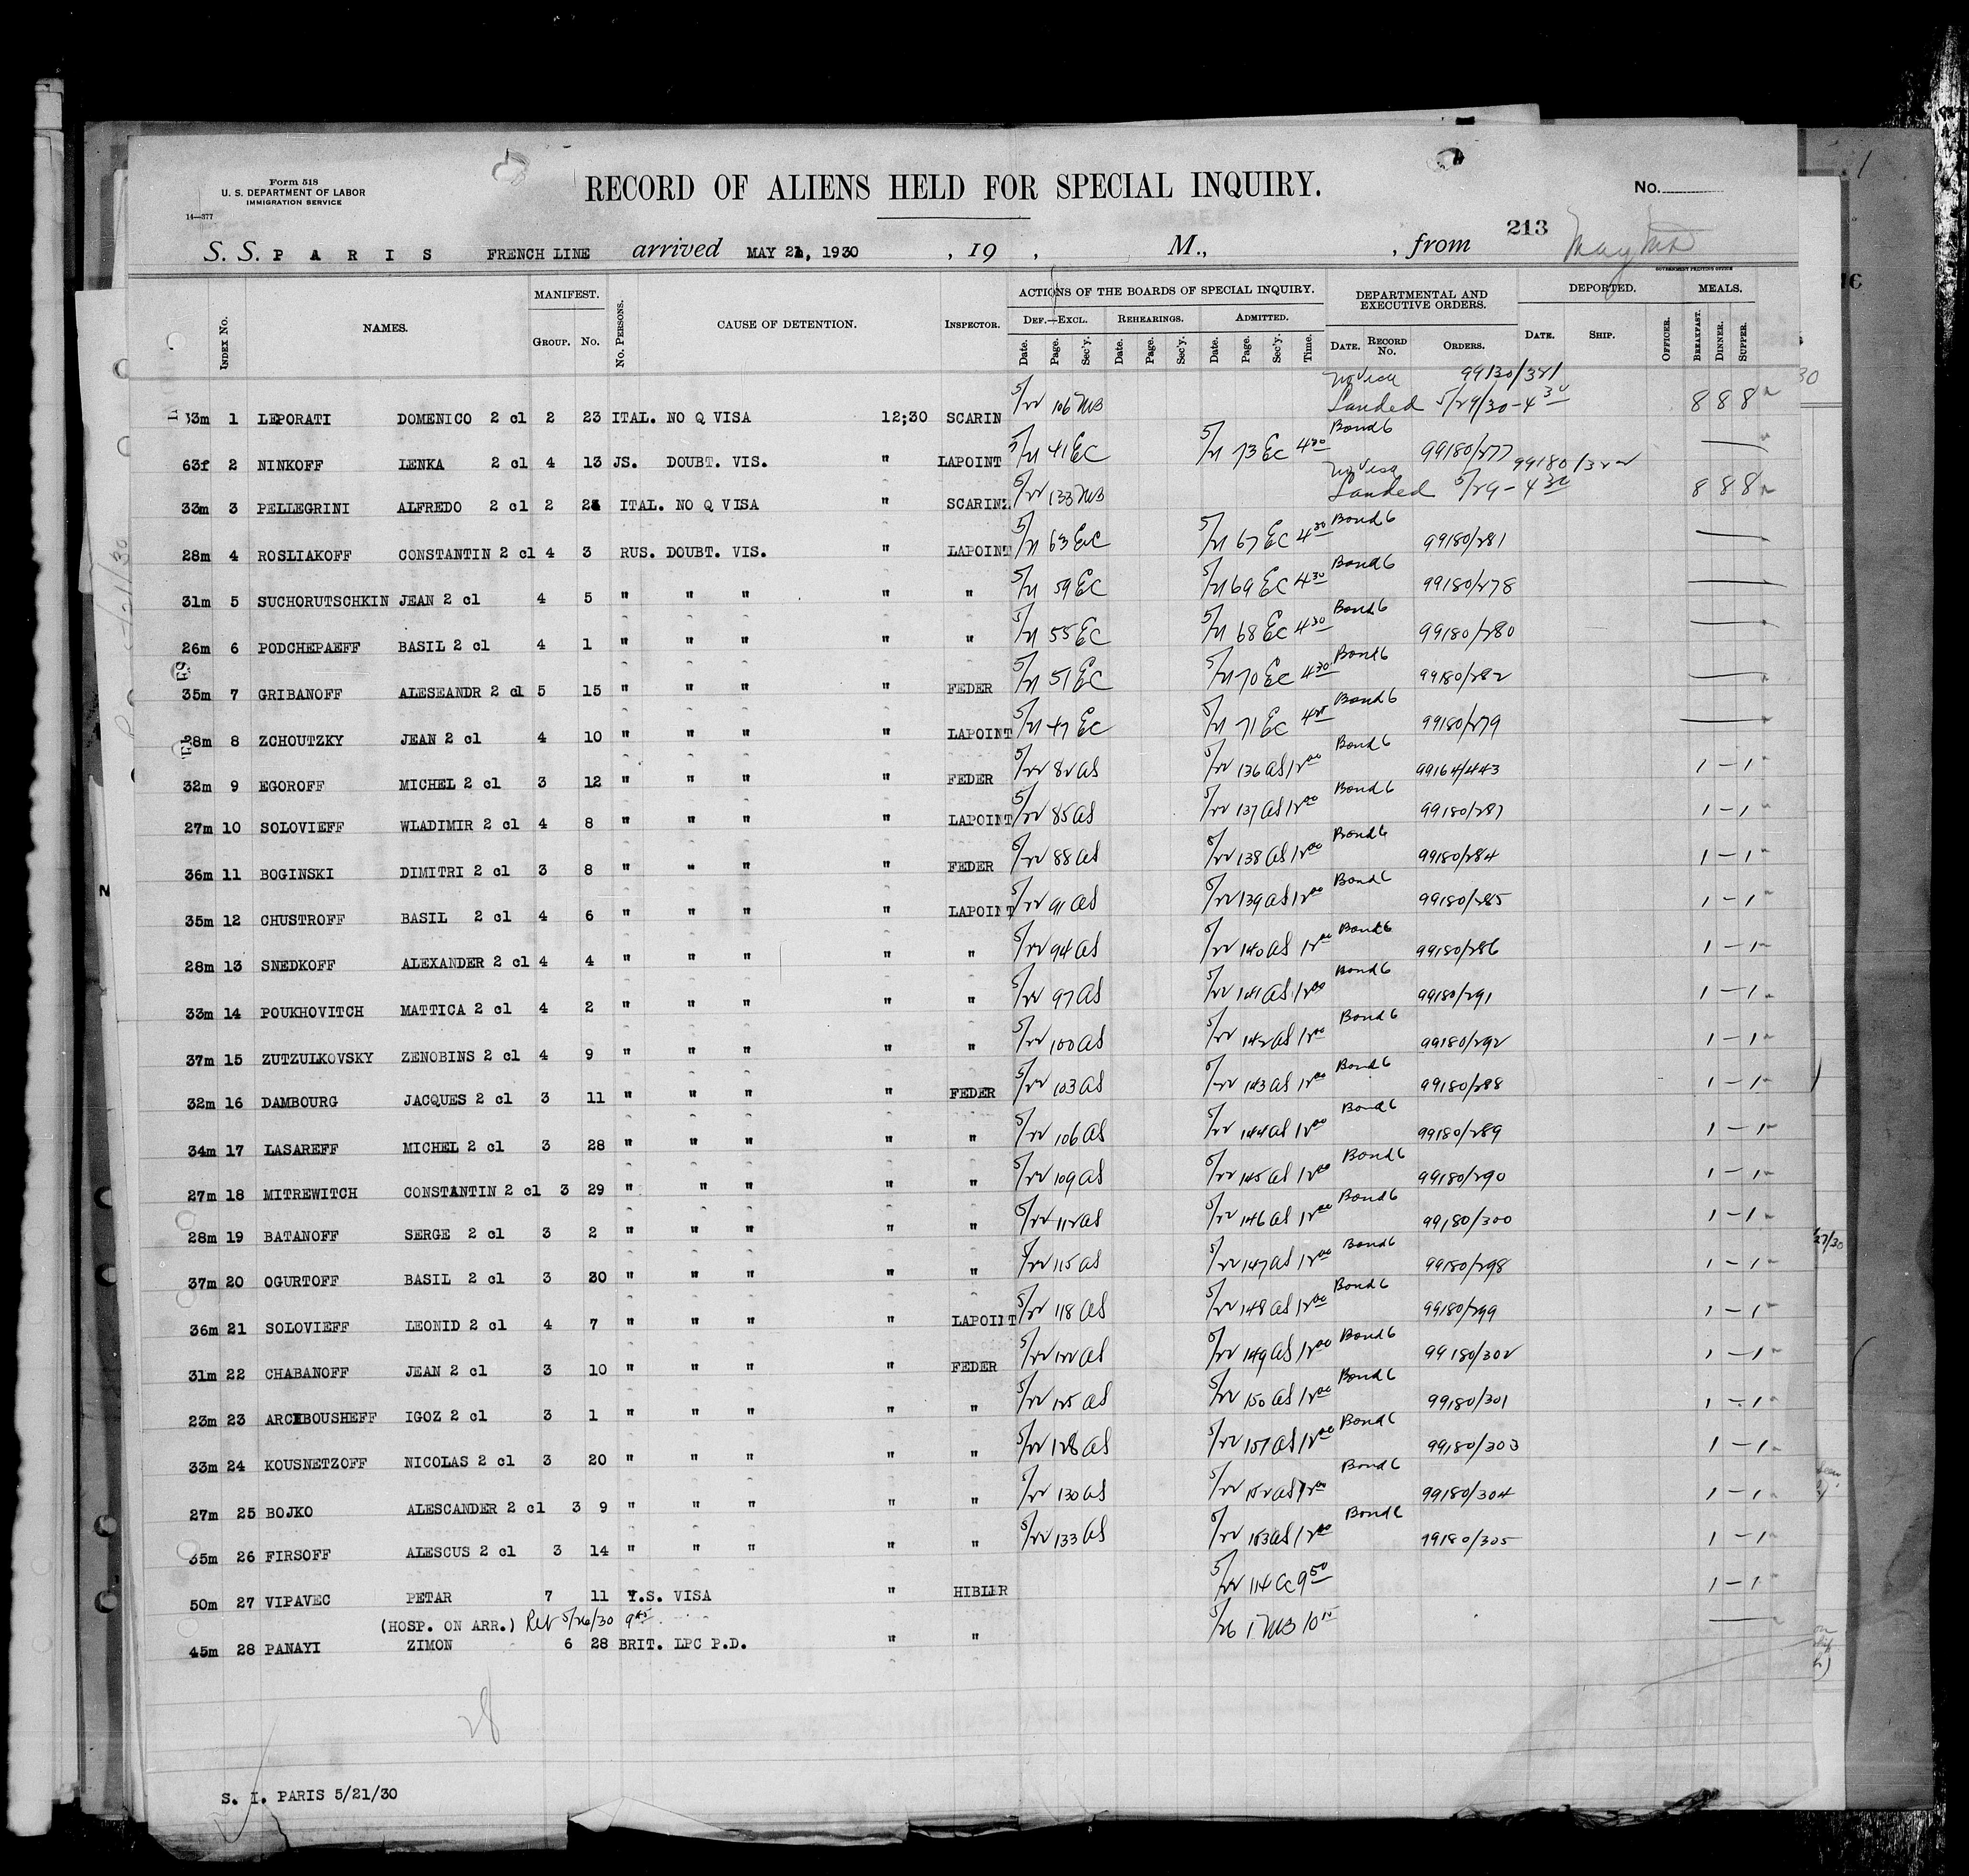 Form 518
U. S. DEPARTMENT OF LABOR
IMMIGRATION SERVICE
14—377
RECORD OF ALIENS HELD FOR SPECIAL INQUIRY.
No.
213
S. S. P A R I S FRENCH LINE arrived MAY 21, 1930 , 19 , M., , from
GOVERNMENT PRINTING OFFICE
INDEX No. NAMES. MANIFEST. GROUP. No. No. PERSONS. CAUSE OF DETENTION. INSPECTOR. ACTIONS OF THE BOARDS OF SPECIAL INQUIRY. DEF.—EXCL. Date. Page. Sec'y. REHEARINGS. Date. Page. Sec'y. ADMITTED. Date. Page. Sec'y. Time. DEPARTMENTAL AND EXECUTIVE ORDERS. DATE. RECORD No. ORDERS. DEPORTED. DATE. SHIP. OFFICER. MEALS. BREAKFAST. DINNER. SUPPER.
No Visa 99130/321
33m 1 LEPORATI DOMENICO 2 cl 2 23 ITAL. NO Q VISA 12;30 SCARIN 5/22 106 MB Landed 5/29/30 - 4 30 8 8 8
Bond 6
63f 2 NINKOFF LENKA 2 cl 4 13 JS. DOUBT. VIS. " LAPOINT 5/21 41 EC 5/21 73 EC 4 30 99180/277
No Visa 99180/322
33m 3 PELLEGRINI ALFREDO 2 cl 2 24 ITAL. NO Q VISA " SCARIN 5/22 133 MB Landed 5/29 - 4 30 8 8 8
Bond 6
28m 4 ROSLIAKOFF CONSTANTIN 2 cl 4 3 RUS. DOUBT. VIS. " LAPOINT 5/21 63 EC 5/21 67 EC 4 30 99180/281
Bond 6
31m 5 SUCHORUTSCHKIN JEAN 2 cl 4 5 " " " " " 5/21 59 EC 5/21 69 EC 4 30 99180/278
Bond 6
26m 6 PODCHEPAEFF BASIL 2 cl 4 1 " " " " " 5/21 55 EC 5/21 68 EC 4 30 99180/280
Bond 6
35m 7 GRIBANOFF ALESEANDR 2 cl 5 15 " " " " FEDER 5/21 51 EC 5/21 70 EC 4 30 99180/282
Bond 6
28m 8 ZCHOUTZKY JEAN 2 cl 4 10 " " " " LAPOINT 5/21 47 EC 5/21 71 EC 99180/279
Bond 6
32m 9 EGOROFF MICHEL 2 cl 3 12 " " " " FEDER 5/22 82 AS 5/22 136 AS 12 00 99164/443 1 – 1
Bond 6
27m 10 SOLOVIEFF WLADIMIR 2 cl 4 8 " " " " LAPOINT 5/22 85 AS 5/22 137 AS 12 00 99180/287 1 – 1
Bond 6
36m 11 BOGINSKI DIMITRI 2 cl 3 8 " " " " FEDER 5/22 88 AS 5/22 138 AS 12 00 99180/284 1 – 1
Bond 6
35m 12 CHUSTROFF BASIL 2 cl 4 6 " " " " LAPOINT 5/22 91 AS 5/22 139 AS 12 00 99180/285 1 – 1
Bond 6
28m 13 SNEDKOFF ALEXANDER 2 cl 4 4 " " " " " 5/22 94 AS 5/22 140 AS 12 00 99180/286 1 – 1
Bond 6
33m 14 POUKHOVITCH MATTICA 2 cl 4 2 " " " " " 5/22 97 AS 5/22 141 AS 12 00 99180/291 1 – 1
Bond 6
37m 15 ZUTZULKOVSKY ZENOBINS 2 cl 4 9 " " " " " 5/22 100 AS 5/22 142 AS 12 00 99180/292 1 – 1
Bond 6
32m 16 DAMBOURG JACQUES 2 cl 3 11 " " " " FEDER 5/22 103 AS 5/22 143 AS 12 00 99180/288 1 – 1
Bond 6
34m 17 LASAREFF MICHEL 2 cl 3 28 " " " " " 5/22 106 AS 5/22 144 AS 12 00 99180/289 1 – 1
Bond 6
27m 18 MITREWITCH CONSTANTIN 2 cl 3 29 " " " " " 5/22 109 AS 5/22 145 AS 12 00 99180/290 1 – 1
Bond 6
28m 19 BATANOFF SERGE 2 cl 3 2 " " " " " 5/22 112 AS 5/22 146 AS 12 00 99180/300 1 – 1
Bond 6
37m 20 OGURTOFF BASIL 2 cl 3 30 " " " " " 5/22 115 AS 5/22 147 AS 12 00 99180/298 1 – 1
Bond 6
36m 21 SOLOVIEFF LEONID 2 cl 4 7 " " " " LAPOINT 5/22 118 AS 5/22 148 AS 12 00 99180/299 1 – 1
Bond 6
31m 22 CHABANOFF JEAN 2 cl 3 10 " " " " FEDER 5/22 122 AS 5/22 149 AS 12 00 99180/302 1 – 1
Bond 6
23m 23 ARCHBOUSHEFF IGOZ 2 cl 3 1 " " " " " 5/22 125 AS 5/22 150 AS 12 00 99180/301 1 – 1
Bond 6
33m 24 KOUSNETZOFF NICOLAS 2 cl 3 20 " " " " " 5/22 128 AS 5/22 151 AS 12 00 99180/303 1 – 1
Bond 6
27m 25 BOJKO ALESCANDER 2 cl 3 9 " " " " " 5/22 130 AS 5/22 152 AS 12 00 99180/304 1 – 1
Bond 6
35m 26 FIRSOFF ALESCUS 2 cl 3 14 " " " " " 5/22 133 AS 5/22 153 AS 12 00 99180/305 1 – 1
50m 27 VIPAVEC PETAR 7 11 Y.S. VISA " HIBLER 5/22 114 9 50 1 – 1
(HOSP. ON ARR.) Ret 5/26/30 9 45
45m 28 PANAYI ZIMON 6 28 BRIT. LPC P.D. " " 5/26 1 MB 10 15
28
S. I. PARIS 5/21/30